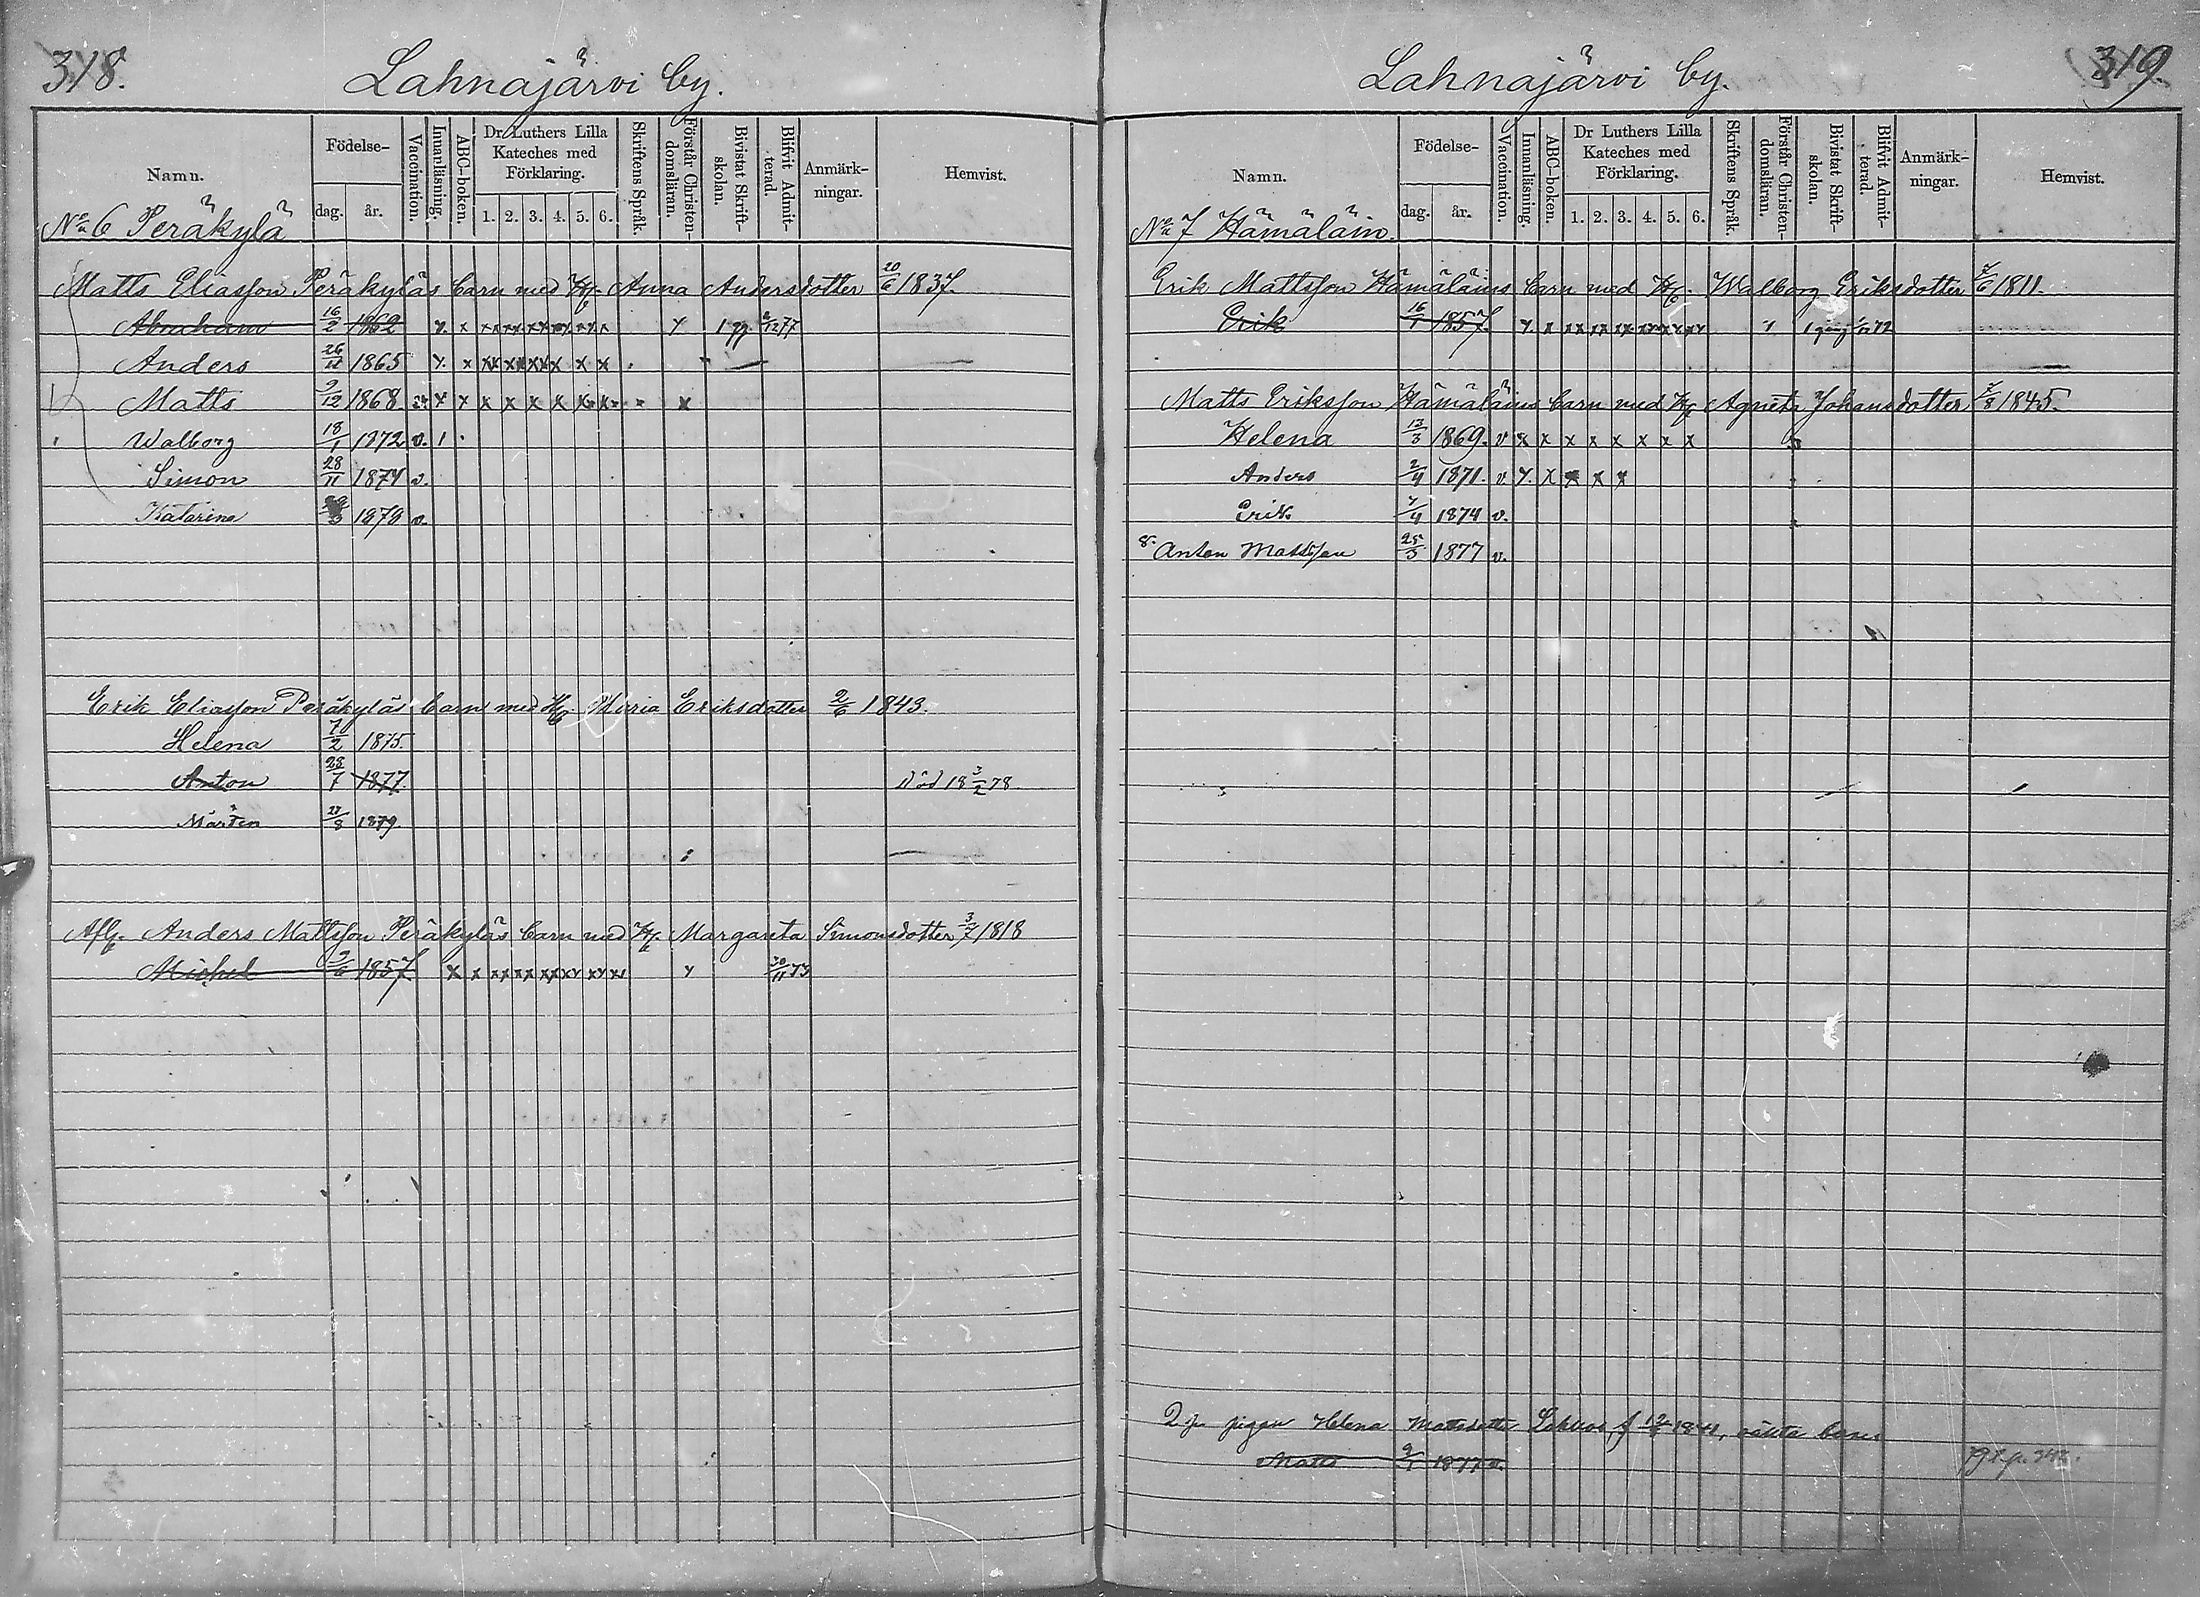 318.
Lahnajärvi by.
Namn. Födelse- dag. år. Vaccination. Innanläsning. ABC-boken. Dr Luthers Lilla Kateches med Förklaring. 1. 2. 3. 4. 5. 6. Skriftens Språk. Förstår Christendomsläran. Bivistat Skriftskolan. Blifvit Admitterad. Anmärkningar. Hemvist.
No 6 Peräkylä
Matts Eliasson Peräkyläs barn med H. Anna Andersdotter 20/6 1837.
Abraham 16/2 1862 x x xx xx xx xx x x x 1 g 2/12 77
Anders 26/11 1865 x x xx xx xx x x x
Matts 9/12 1868 x x x x x x x x x
Walborg 18/1 1872 v. 1
Simon 28/11 1874 v.
Katarina 1878 v.
Erik Eliasson Peräkyläs barn med H. Maria Eriksdotter 2/6 1843.
Helena 7/2 1875.
Anton 28/7 1877. Död 18 3/2 78.
Mårten 27/8 1879.
Afl. Anders Mattsson Peräkyläs barn med H. Margareta Simonsdotter 3/7 1818
Michel 9/6 1857 x x xx xx xx xx xx xx x 30/11 73
319.
Lahnajärvi by.
Namn. Födelse- dag. år. Vaccination. Innanläsning. ABC-boken. Dr Luthers Lilla Kateches med Förklaring. 1. 2. 3. 4. 5. 6. Skriftens Språk. Förstår Christendomsläran. Bivistat Skriftskolan. Blifvit Admitterad. Anmärkningar. Hemvist.
No 7 Hämäläin.
Erik Mattsson Hämäläins barn med H. Walborg Eriksdotter 7/6 1811.
Erik 16/1 1857 x x xx xx xx xx xx xx 1 gång 72
Matts Eriksson Hämäläins barn med H. Agneta Johansdotter 7/8 1845.
Helena 13/3 1869. v x x x x x x x x
Anders 2/4 1871. v x. x x x x
Erik 7/4 1874 v.
8. Anton Mattsson 25/5 1877 v.
pigan Helena Mattsdotter barn
Matts 9/1 1877 v.